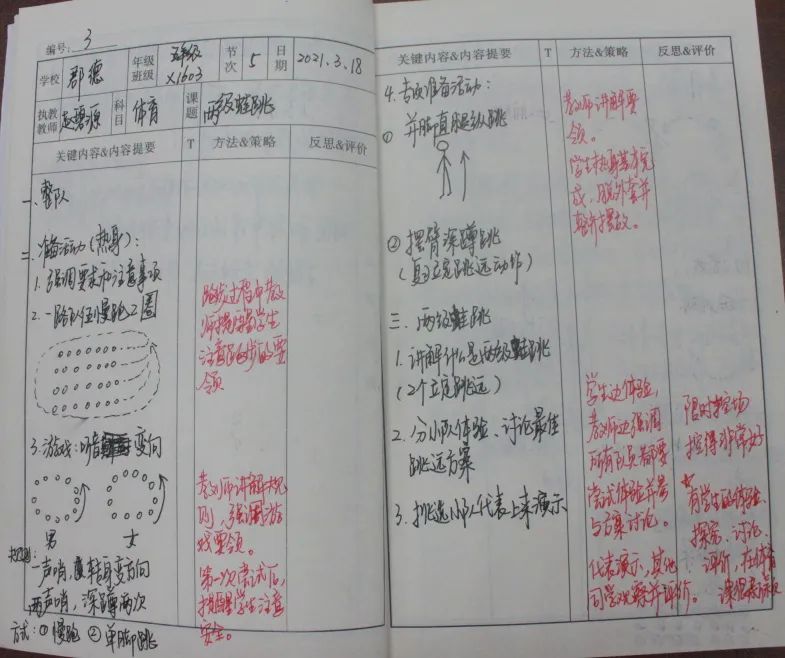 编号: 3
学校 郡德 年级班级 五年级 X1603 节次 5 日期 2021.3.18
执教教师 赵碧源 科目 体育 课题 两级蛙跳
关键内容&内容提要 T 方法&策略 反思&评价
一、整队
二、准备活动(热身):
1. 强调要求和注意事项
2. 一路队伍慢跑2圈
跑步过程中教
师提醒学生
注意跑步的要
领
3. 游戏: 听音 变向
男 女
规则:
一声哨,转身变方向
两声哨,深蹲两次
方式: ① 慢跑 ② 单脚跳
教师讲解规
则,强调游
戏要领。
第一次尝试后,
提醒学生注意
安全。
关键内容&内容提要 T 方法&策略 反思&评价
4. 专项准备活动:
① 并脚直腿纵跳
教师讲解要
领。
学生热身基本完
成,脱外套并
整齐摆放。
② 摆臂深蹲跳
(复习立定跳远动作)
三、两级蛙跳
1. 讲解什么是两级蛙跳
(2个立定跳远)
2. 分小队体验、讨论最佳
跳远方案
3. 挑选小队代表上来演示
学生边体验,
教师边强调
所有队员都要
尝试体验并参
与方案讨论。
代表演示,其他
同学观察并评价。
限时控场
控得非常好
有学生的体验、
探究、讨论、
评价,在体育
课很